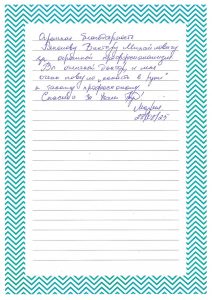 Огромная благодарность
Виктору Михайловичу
за огромный профессионализм
Вы отличный доктор и мне
очень повезло попасть в руки
к такому профессионалу
Спасибо за Ваш труд!
Мария